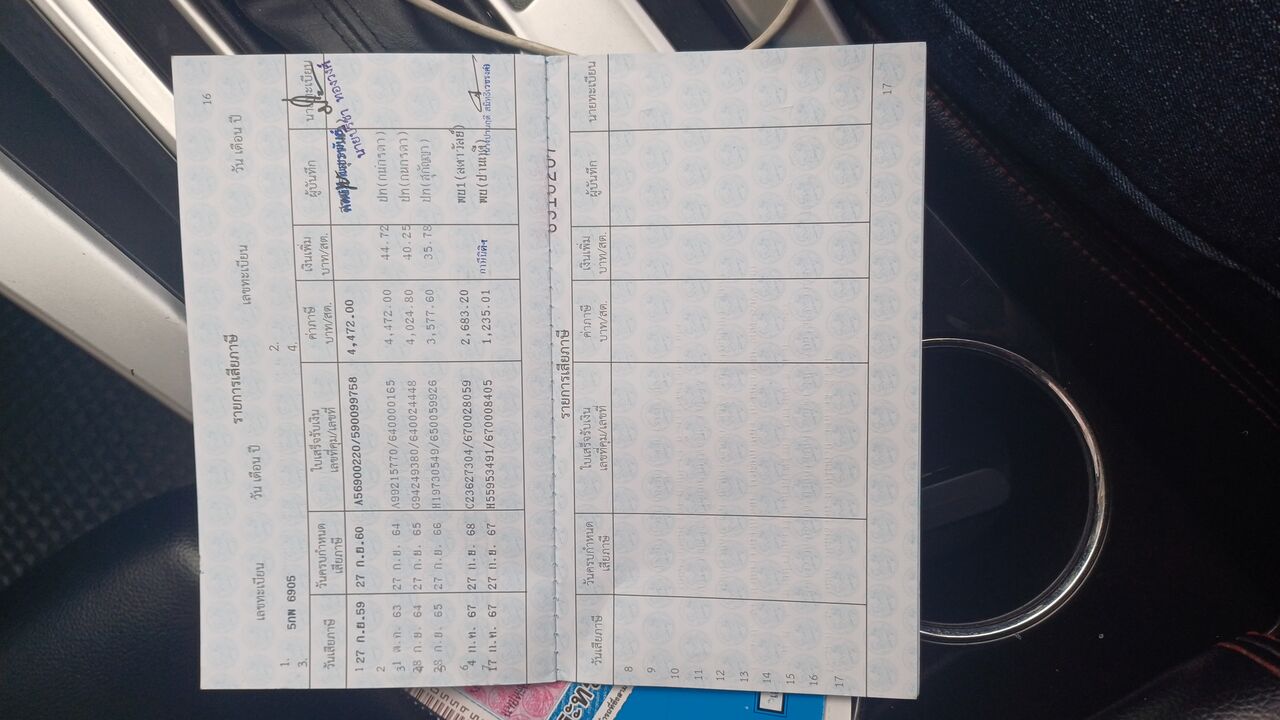 16
รายการเสียภาษี
เลขทะเบียน วัน เดือน ปี เลขทะเบียน วัน เดือน ปี
1. 5กพ 6905 2.
3. 4.
วันเสียภาษี วันครบกำหนดเสียภาษี ใบเสร็จรับเงิน เลขที่คุม/เลขที่ ค่าภาษี บาท/สต. เงินเพิ่ม บาท/สต. ผู้บันทึก นายทะเบียน
1 27 ก.ย.59 27 ก.ย.60 A56900220/590099758 4,472.00
2 31 ต.ค. 63 27 ก.ย. 64 A99215770/640000165 4,472.00 44.72 ปท(กนกรดา)
3 28 ก.ย. 64 27 ก.ย. 65 G94249380/640024448 4,024.80 40.25 ปท(กนกรดา)
4 23 ก.ย. 65 27 ก.ย. 66 H19730549/650059926 3,577.60 35.78 ปท(สุกัญญา)
6 4 ก.ค. 67 27 ก.ย. 68 C23627304/670028059 2,683.20 พย1(ลดาวัลย์)
7 17 ก.ค. 67 27 ก.ย. 67 H55953491/670008405 1,235.01
รายการเสียภาษี
วันเสียภาษี วันครบกำหนดเสียภาษี ใบเสร็จรับเงิน เลขที่คุม/เลขที่ ค่าภาษี บาท/สต. เงินเพิ่ม บาท/สต. ผู้บันทึก นายทะเบียน
8
9
10
11
12
13
14
15
16
17
17